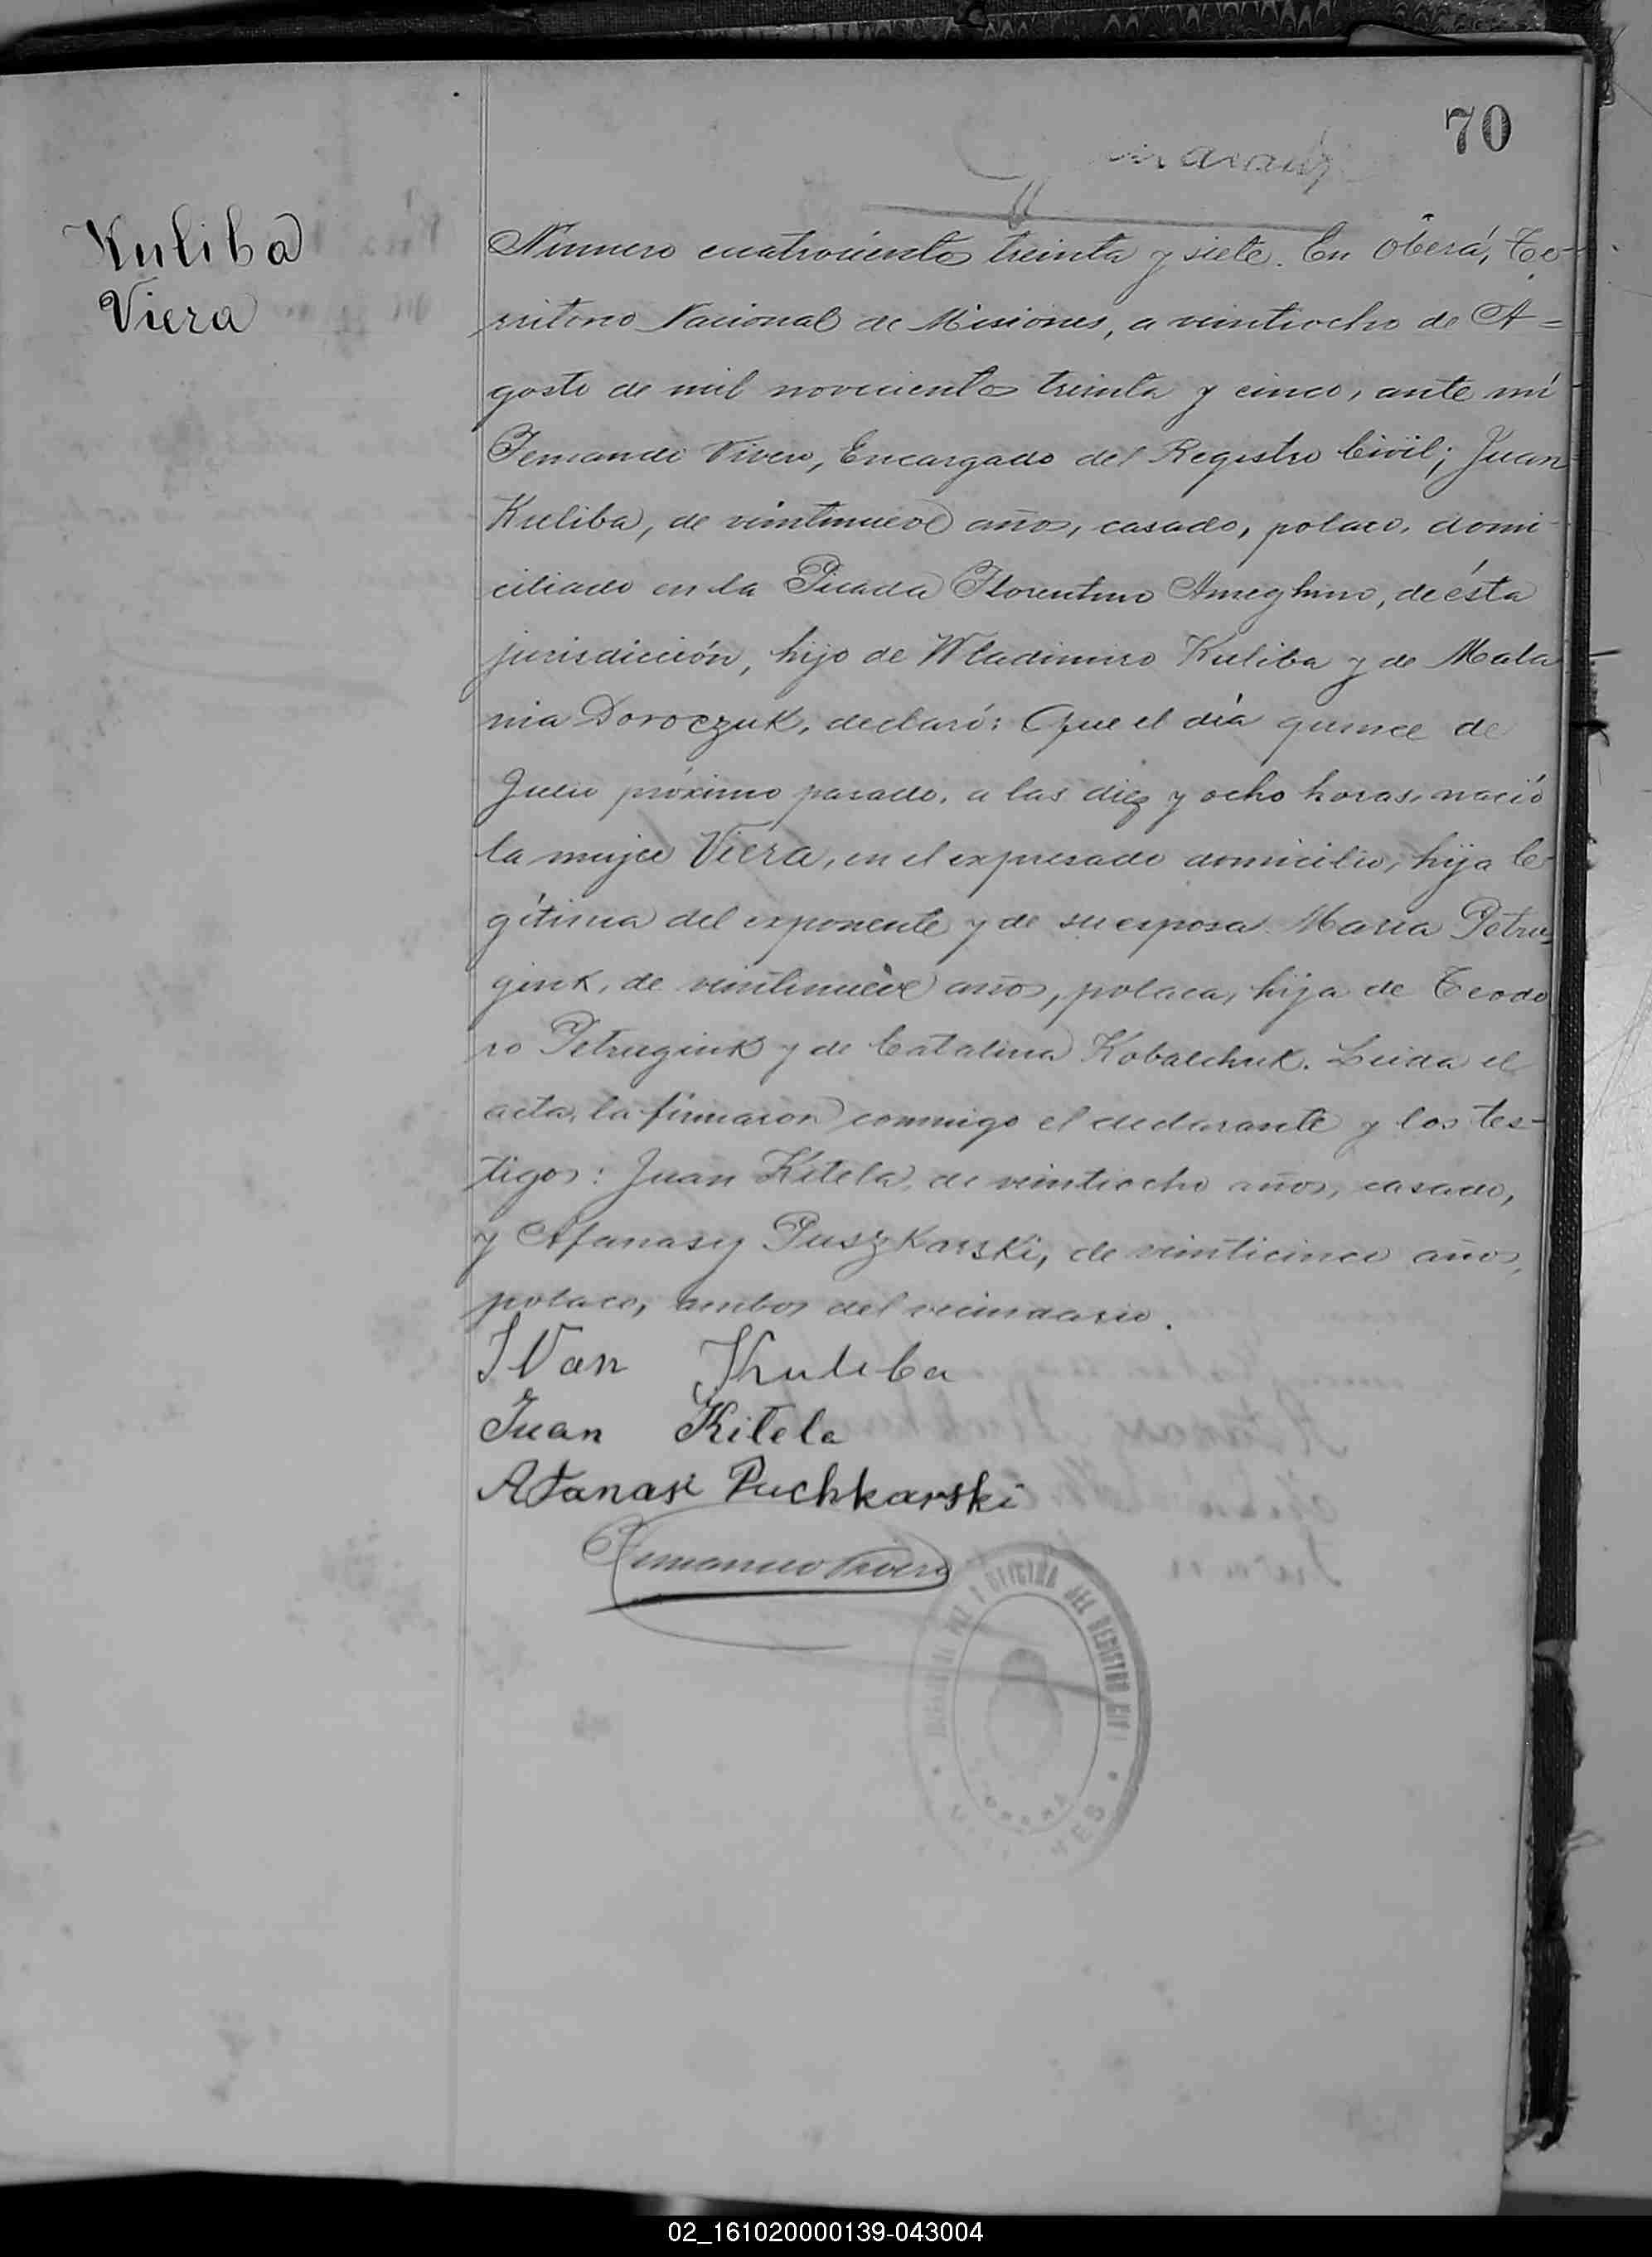 70
Kuliba
Viera
Número cuatrocientos treinta y siete. En Oberá, Te-
rritorio Nacional de Misiones, a veintiocho de A=
gosto de mil novecientos treinta y cinco, ante mí
Fernando Vivero, Encargado del Registro Civil; Juan
Kuliba, de veintinueve años, casado, polaco, domi-
ciliado en la Picada Florentino Ameghino, de ésta
jurisdicción, hijo de Wladimiro Kuliba y de Mala
nia Doroczuk, declaró: Que el día quince de
Julio próximo pasado, a las diez y ocho horas, nació
la mujer Viera, en el expresado domicilio, hija le-
gítima del exponente y de su esposa María Petru-
giuk, de veintinueve años, polaca, hija de Teodo
ro Petrugiuk y de Catalina Kobalchuk. Leída el
acta, la firmaron conmigo el declarante y los tes-
tigos: Juan Kitela, de veintiocho años, casado,
y Afanasy Puszkarski, de veinticinco años,
polaco, ambos del vecindario.
IVan Kuliba
Juan Kitela
Afanasi Puchkarski
Fernando Vivero
OFICINA DEL REGISTRO CIVIL
02_161020000139-043004